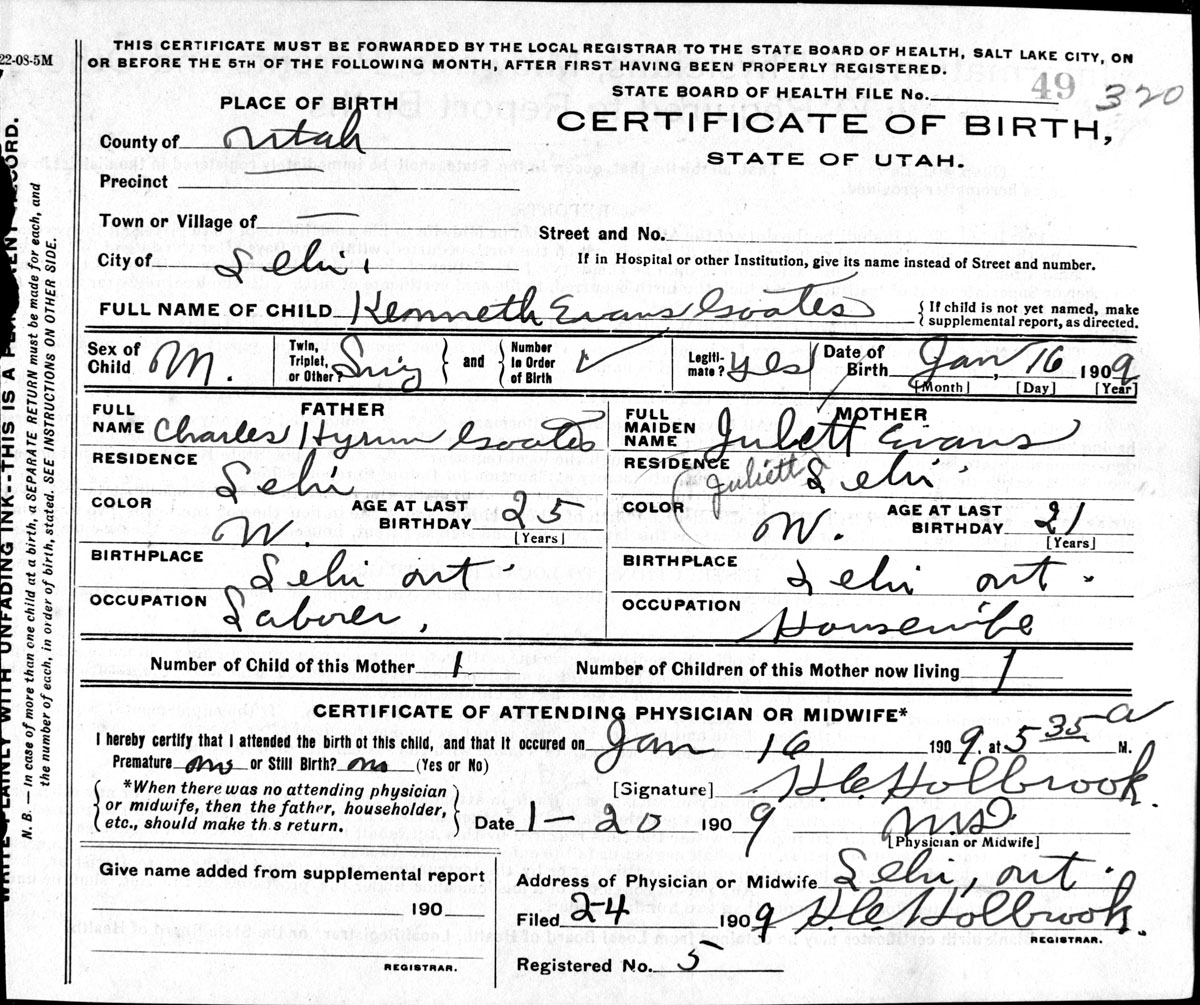 22-08-5M
THIS CERTIFICATE MUST BE FORWARDED BY THE LOCAL REGISTRAR TO THE STATE BOARD OF HEALTH, SALT LAKE CITY, ON
OR BEFORE THE 5TH OF THE FOLLOWING MONTH, AFTER FIRST HAVING BEEN PROPERLY REGISTERED.
STATE BOARD OF HEALTH FILE No. 49 320
PLACE OF BIRTH
CERTIFICATE OF BIRTH,
STATE OF UTAH.
County of Utah
Precinct
Town or Village of —
Street and No.
City of Lehi.
If in Hospital or other Institution, give its name instead of Street and number.
FULL NAME OF CHILD Kenneth Evans Goates { If child is not yet named, make supplemental report, as directed.
Sex of Child M. Twin, Triplet, or Other? Sing and Number In Order of Birth Legiti-mate? yes Date of Birth Jan, 16 1909
[Month] [Day] [Year]
FATHER
FULL NAME Charles Hyrum Goates
RESIDENCE Lehi
COLOR W. AGE AT LAST BIRTHDAY 25
[Years]
BIRTHPLACE Lehi Ut.
OCCUPATION Laborer,
MOTHER
FULL MAIDEN NAME Julett Evans
RESIDENCE Lehi
(Juliett
COLOR W. AGE AT LAST BIRTHDAY 21
[Years]
BIRTHPLACE Lehi Ut.
OCCUPATION Housewife
Number of Child of this Mother 1 Number of Children of this Mother now living 1
CERTIFICATE OF ATTENDING PHYSICIAN OR MIDWIFE*
I hereby certify that I attended the birth of this child, and that it occured on Jan 16 1909. at 5 35 a M.
Premature no or Still Birth? no (Yes or No)
*When there was no attending physician or midwife, then the father, householder, etc., should make th.s return.
[Signature] H. C. Holbrook.
Date 1-20 1909 M.D.
[Physician or Midwife]
Give name added from supplemental report
190
REGISTRAR.
Address of Physician or Midwife Lehi, Ut.
Filed 2-4 1909 H. C. Holbrook.
REGISTRAR.
Registered No. 5
WRITE PLAINLY WITH UNFADING INK---THIS IS A PERMANENT RECORD.
N. B. — In case of more than one child at a birth, a SEPARATE RETURN must be made for each, and
the number of each, in order of birth, stated. SEE INSTRUCTIONS ON OTHER SIDE.